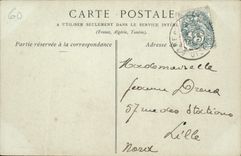 60
CARTE POSTALE
A UTILISER SEULEMENT DANS LE SERVICE INTÉR
(France, Algérie, Tunisie)
Partie réservée à la correspondance
Adresse du
Mademoiselle
Jeanne
57 rue des Stations
Lille
Nord